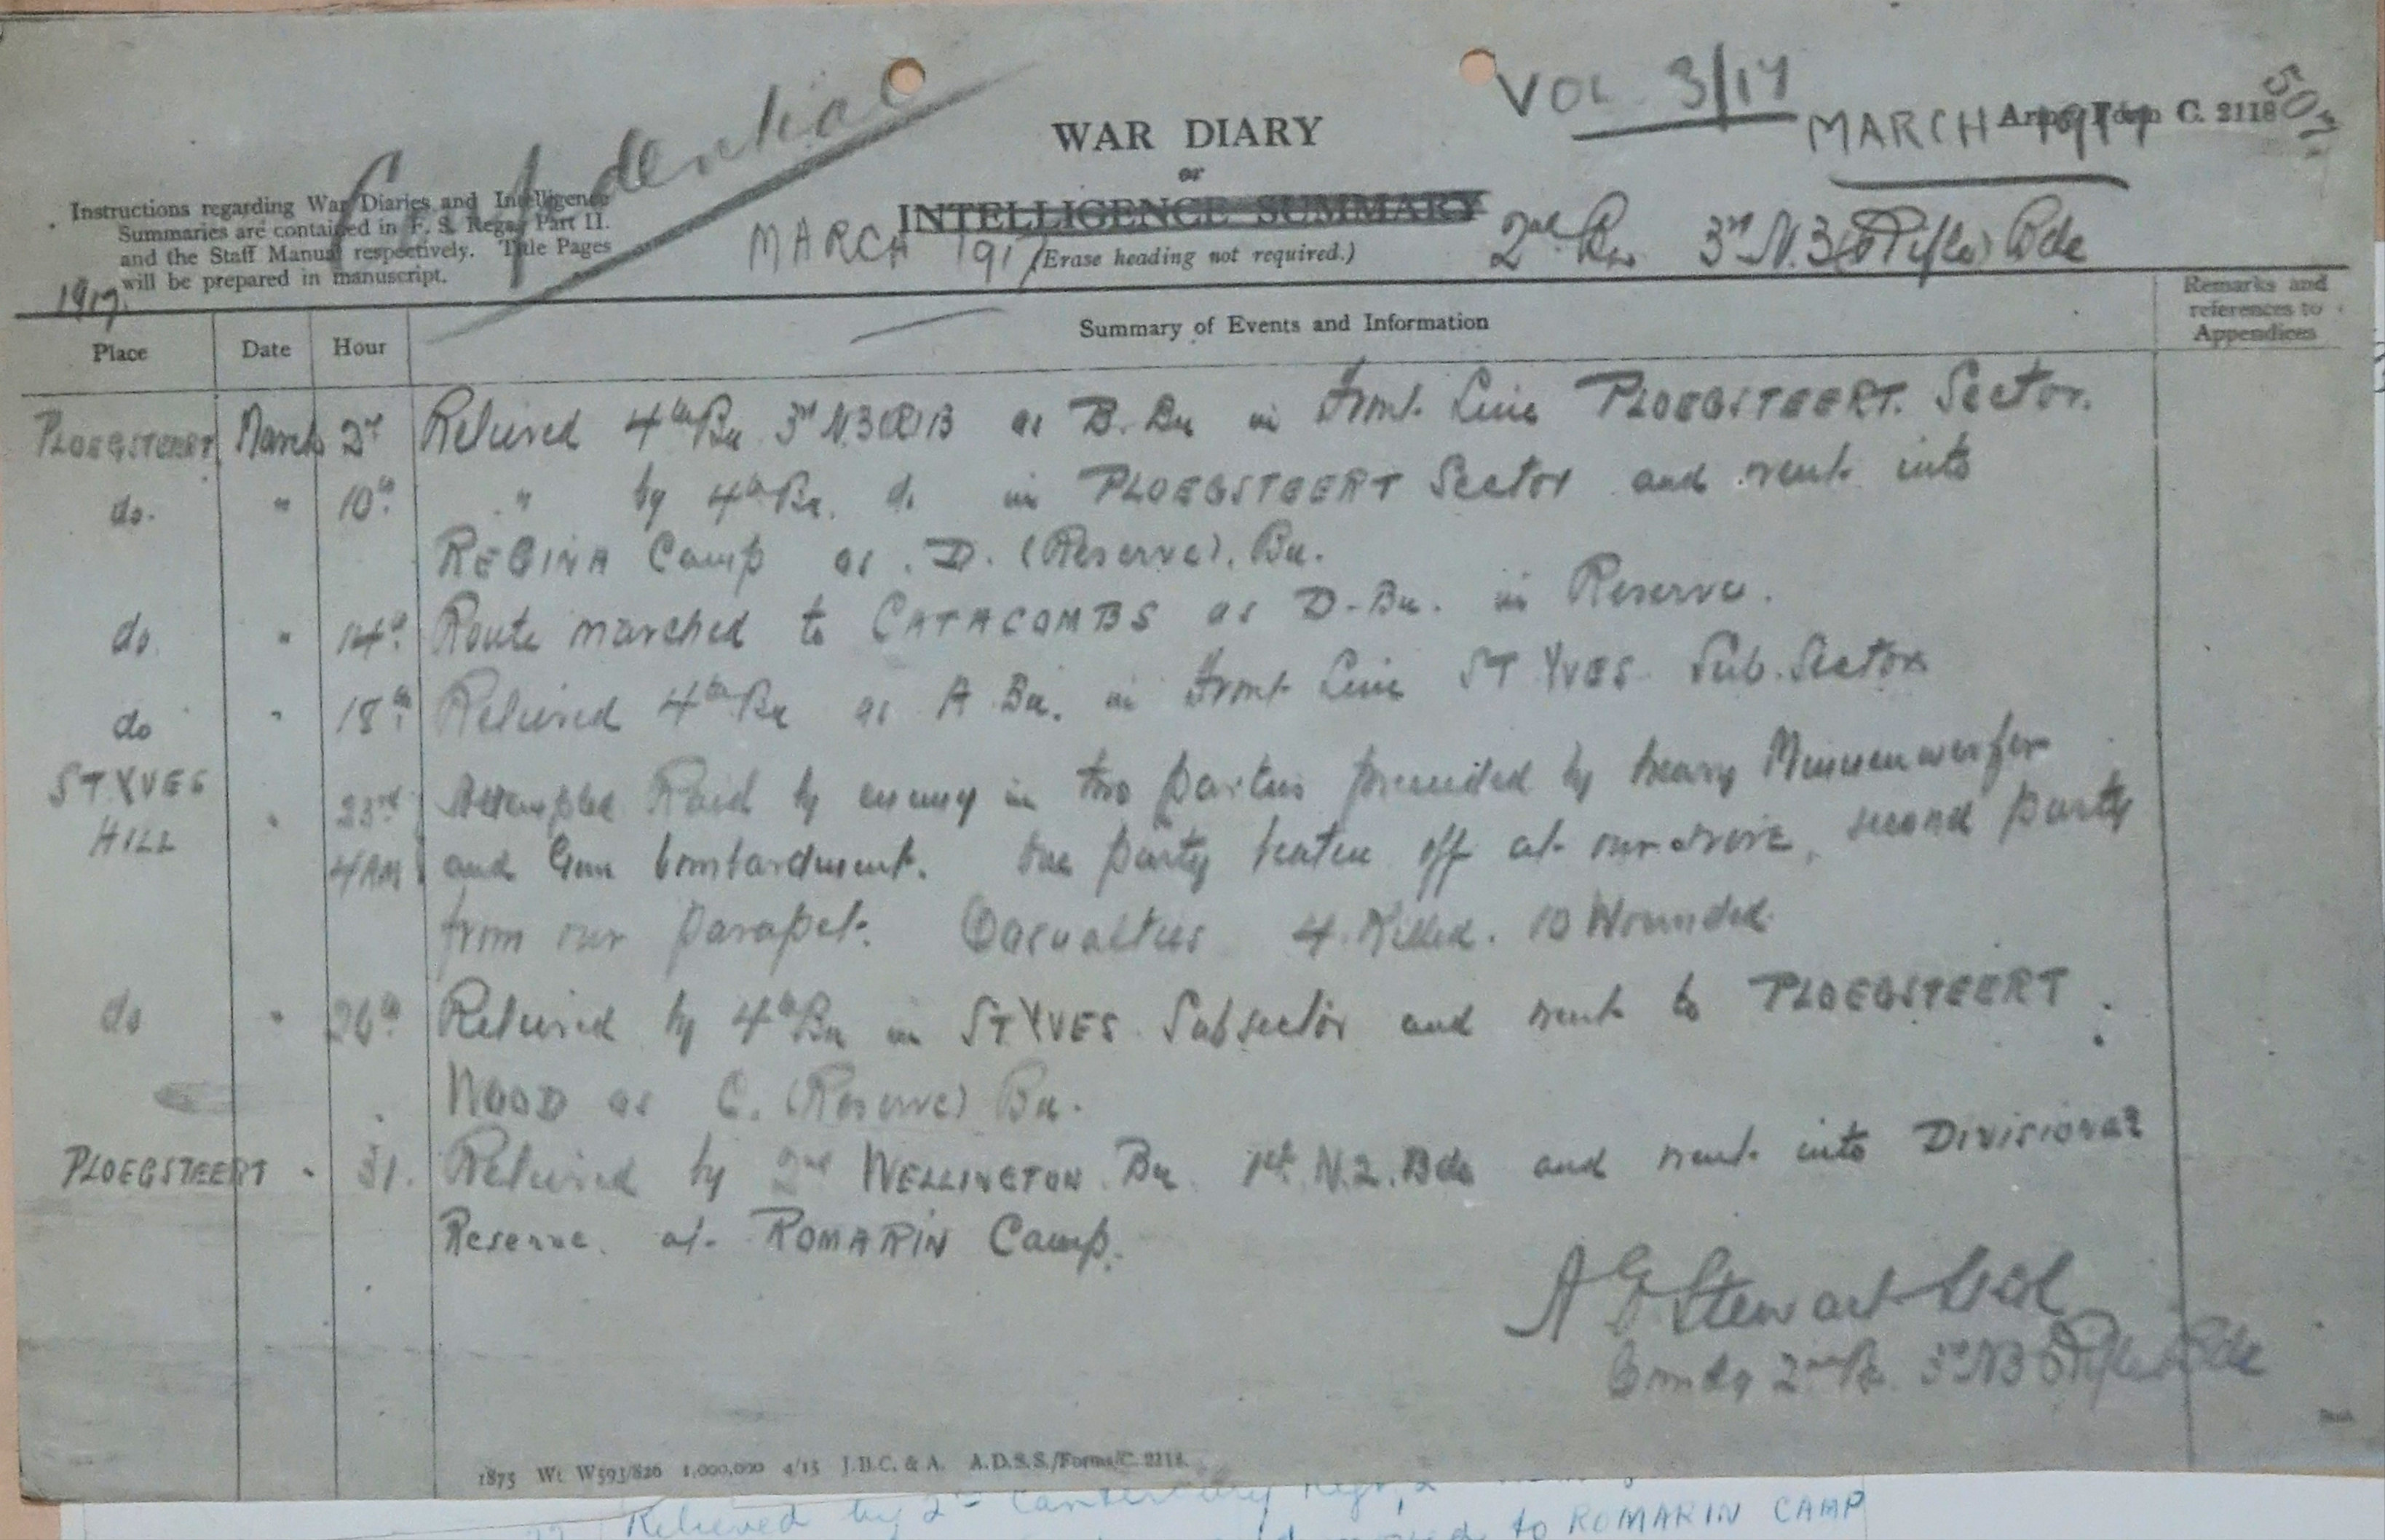 Confidential
VOL 3/17
MARCH 1917
Army Form C. 2118
WAR DIARY
or
INTELLIGENCE SUMMARY
(Erase heading not required.)
Instructions regarding War Diaries and Intelligence
Summaries are contained in F. S. Regs., Part II.
and the Staff Manual respectively. Title Pages
will be prepared in manuscript.
MARCH 1917
2nd Bn 3rd N.Z. (Rifle) Bde
1917.
Place Date Hour Summary of Events and Information Remarks and references to Appendices
PLOEGSTEERT March 2nd Relieved 4th Bn 3rd N.Z.(R)B as B. Bn in Front Line PLOEGSTEERT. Sector.
do. " 10th " by 4th Bn. do in PLOEGSTEERT Sector and went into
REGINA Camp as D. (Reserve). Bn.
do. " 14th Route marched to CATACOMBS as D-Bn. in Reserve.
do " 18th Relieved 4th Bn as A Bn. in Front Line ST YVES Sub. Sector
ST YVES
HILL " 23rd Attempted Raid by enemy in two parties preceeded by heavy Minnenwerfer
4 AM and Gun bombardment. One party beaten off at our wire, second party
from our parapet. Casualties 4 Killed. 10 Wounded.
do " 26th Relieved by 4th Bn in ST YVES Subsector and went to PLOEGSTEERT
WOOD as C. (Reserve) Bn.
PLOEGSTEERT " 31. Relieved by 2nd WELLINGTON Bn 1st N.Z. Bde and went into Divisional
Reserve at ROMARIN Camp.
A E Stewart Lt Col
Comdg 2nd Bn 3rd NZ Rifle Bde
1875 Wt. W593/826 1,000,000 4/15 J.B.C. & A. A.D.S.S./Forms/C. 2118.
Relieved by 2nd Canterbury Regt,
to ROMARIN CAMP